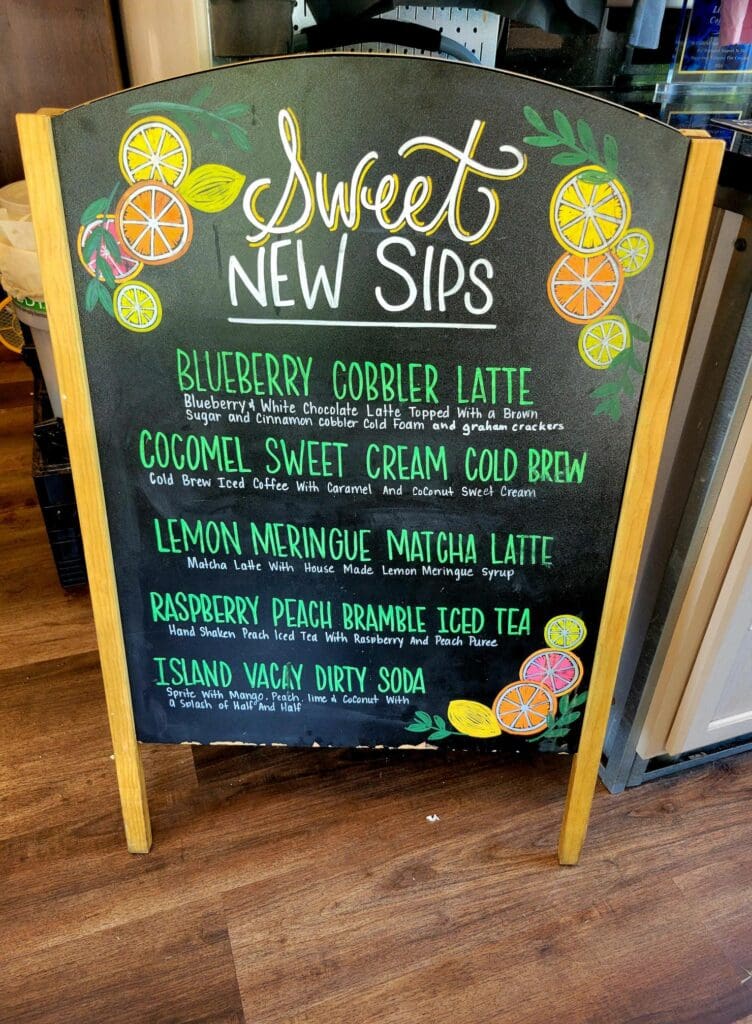 Sweet
NEW SIPS
BLUEBERRY COBBLER LATTE
Blueberry & White Chocolate Latte Topped With a Brown
Sugar and Cinnamon cobbler Cold Foam and graham crackers
COCOMEL SWEET CREAM COLD BREW
Cold Brew Iced Coffee With Caramel And Coconut Sweet Cream
LEMON MERINGUE MATCHA LATTE
Matcha Latte With House Made Lemon Meringue Syrup
RASPBERRY PEACH BRAMBLE ICED TEA
Hand Shaken Peach Iced Tea With Raspberry And Peach Puree
ISLAND VACAY DIRTY SODA
Sprite With Mango, Peach, lime & Coconut With
a Splash of Half And Half